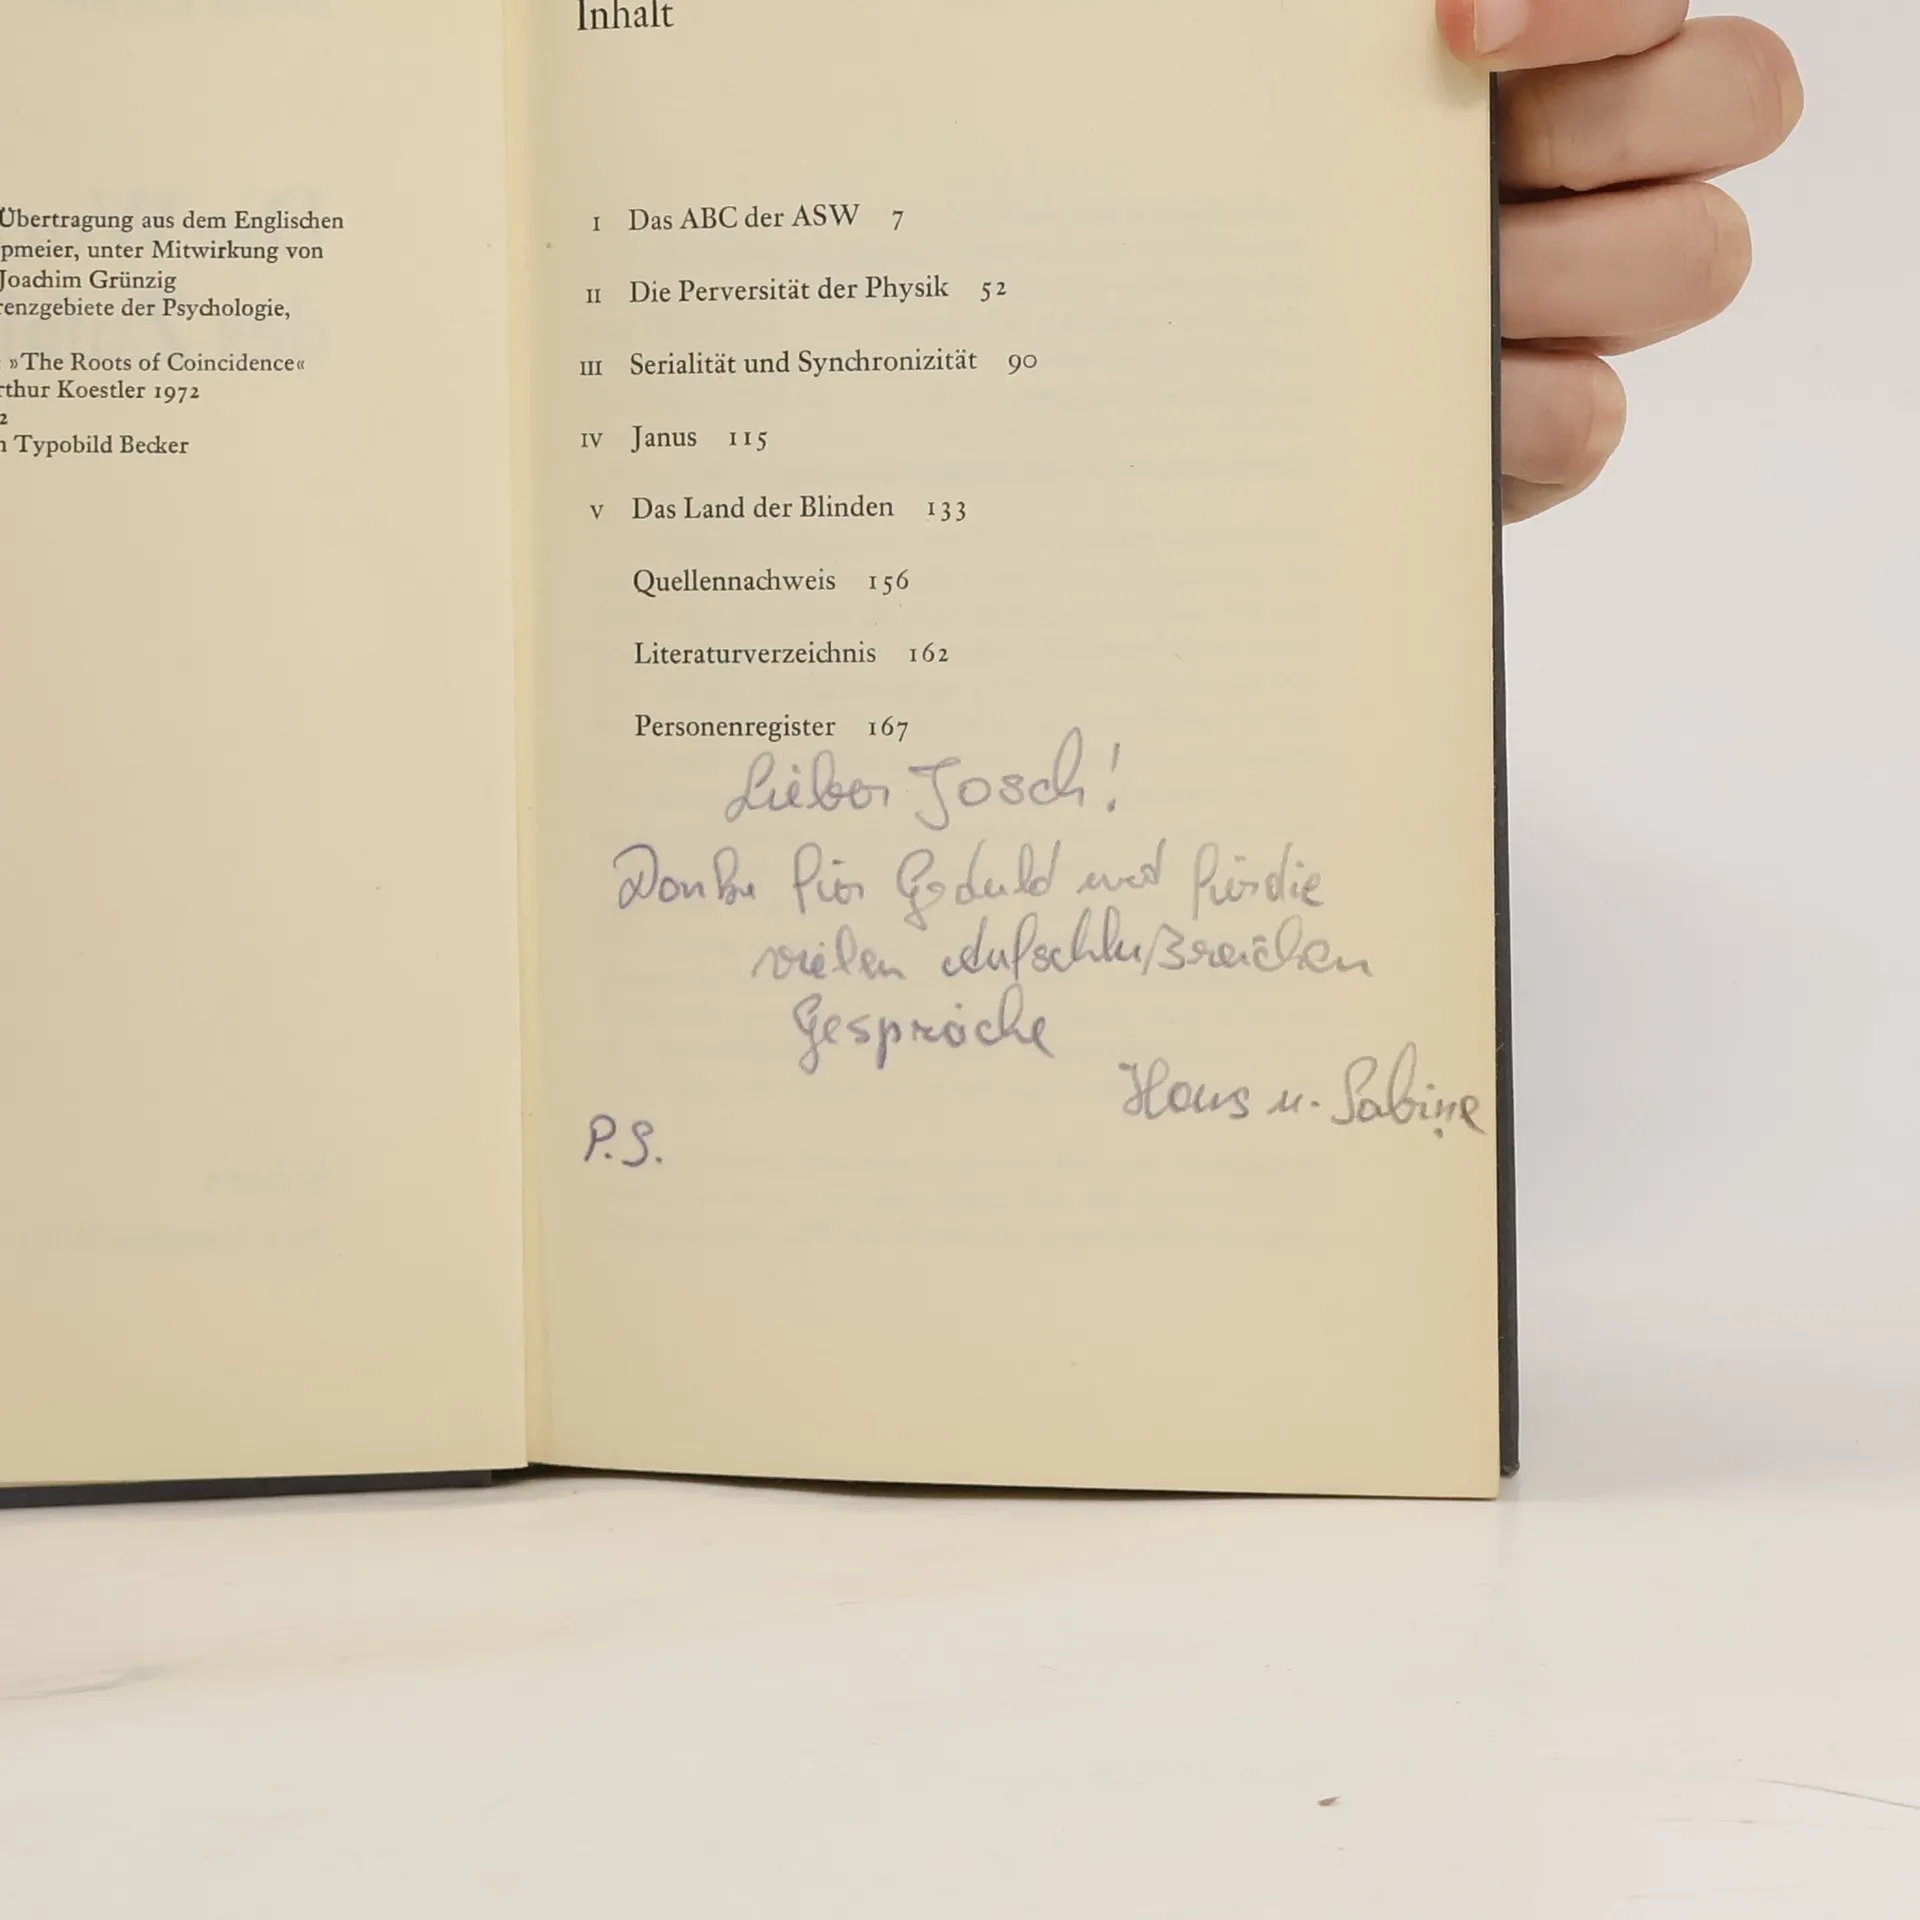 Übertragung aus dem Englischen
pmeier, unter Mitwirkung von
Joachim Grünzig
renzgebiete der Psychologie,
: »The Roots of Coincidence«
rthur Koestler 1972
2
n Typobild Becker
Inhalt
I Das ABC der ASW 7
II Die Perversität der Physik 52
III Serialität und Synchronizität 90
IV Janus 115
V Das Land der Blinden 133
Quellennachweis 156
Literaturverzeichnis 162
Personenregister 167
Lieber Josch!
Danke für Geduld und für die
vielen Aufschlußreichen
Gespräche
Hans u. Sabine
P.S.